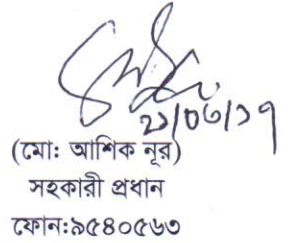 ২১/০৩/১৭
(মো: আশিক নূর)
সহকারী প্রধান
ফোন:৯৫৪০৫৬৩